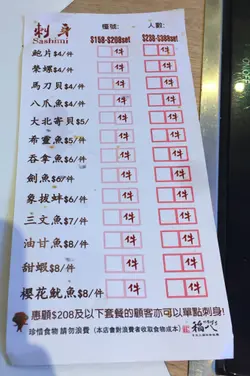 刺身 檯號: 人數:
Sashimi $158-$208set $238-$388set
鮑片$4/件 件 件
螢螺$4/件 件 件
馬刀貝$4/件 件 件
八爪,魚$4/件 件 件
大北寄貝$5/ 件 件
希靈,魚$5/件 件 件
吞拿,魚$6/件 件 件
劍,魚$6/件 件 件
象拔蚌$6/件 件 件
三文,魚$7/件 件 件
油甘,魚$8/件 件 件
甜蝦$8/件 件 件
櫻花魷,魚$8/件 件 件
惠顧$208及以下套餐的顧客亦可以單點刺身!
珍惜食物 請勿浪費 (本店會對浪費者收取食物成本)